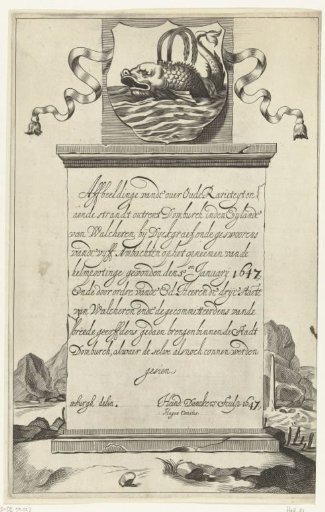 Affbeeldinge vande over Oude Rariteyten
aende strandt ontrent Domburch inden Eylande
van Walcheren, by Dyckgraef ende gesworens
vande vyff Ambachten op het geneemen vande
helmeeringe gevonden den 5en January 1647.
Ende door ordre vande Ed. Heeren de drye Staten
van Walcheren ende gecommitteerdens vande
breede geerffdens gedaen brengen binnen de Stadt
Domburch, alwaer de selve als noch connen werden
gesien
delin. Hend. Danckers Sculp. 1647.
Hagae Comitis.